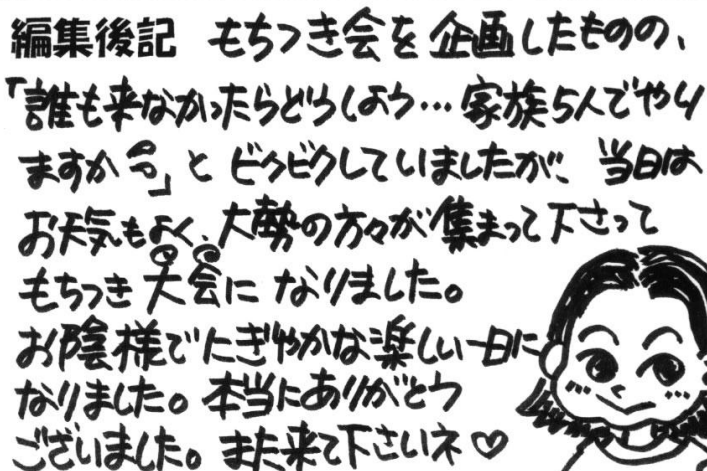 編集後記 もちつき会を企画したものの、
「誰も来なかったらどうしよう…家族5人でやり
ますか」とビクビクしていましたが、当日は
お天気もよく、大勢の方々が集まって下さって
もちつき大会になりました。
お陰様でにぎやかな楽しい一日に
なりました。本当にありがとう
ございました。また来て下さいネ♡